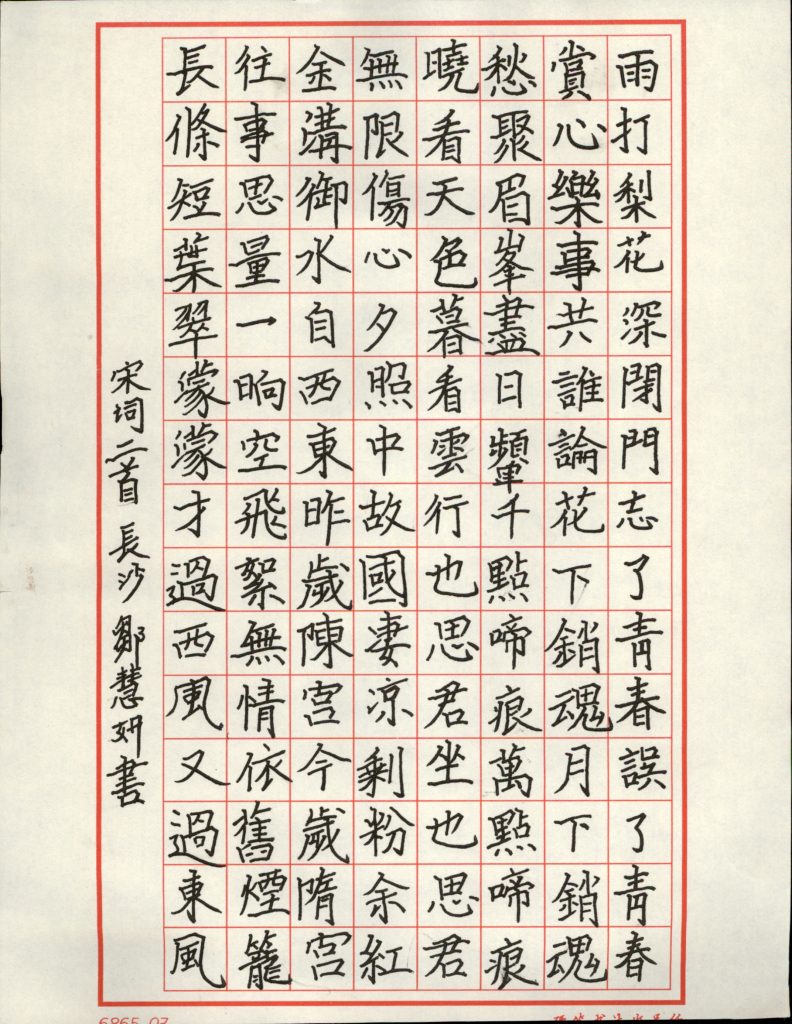 雨打梨花深閉門志了青春誤了青春
賞心樂事共誰論花下銷魂月下銷魂
愁聚眉峯盡日顰千點啼痕萬點啼痕
曉看天色暮看雲行也思君坐也思君
無限傷心夕照中故國凄凉剩粉余紅
金溝御水自西東昨歲陳宮今歲隋宮
往事思量一晌空飛絮無情依舊煙籠
長條短葉翠濛濛才過西風又過東風
宋词二首 長沙 鄒慧妍書
6865.07